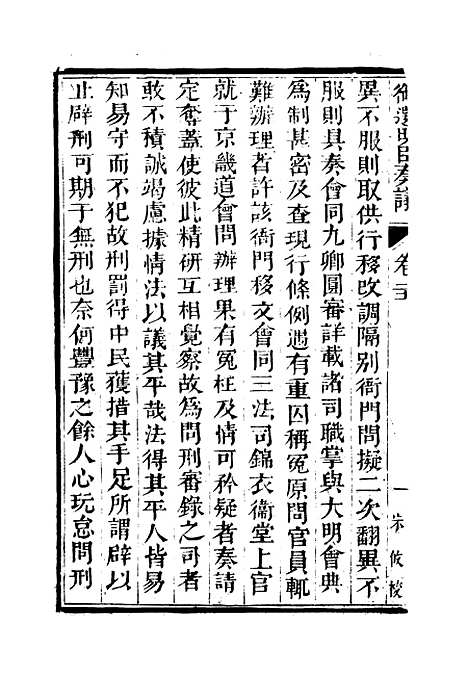 異不服則取供行移改調隔別衙門問擬二次翻異不
服則具奏會同九卿圓審詳載諸司職掌與大明會典
為制甚密及查現行條例遇有重囚稱冤原問官員輒
難辦理者許該衙門移文會同三法司錦衣衛堂上官
就于京畿道會問辦理果有冤枉及情可矜疑者奏請
定奪蓋使彼此精研互相覺察故為問刑審錄之司者
敢不積誠竭慮據情法以議其平哉法得其平人皆易
知易守而不犯故刑罰得中民獲措其手足所謂辟以
止辟刑可期于無刑也奈何豐豫之餘人心玩怠問刑